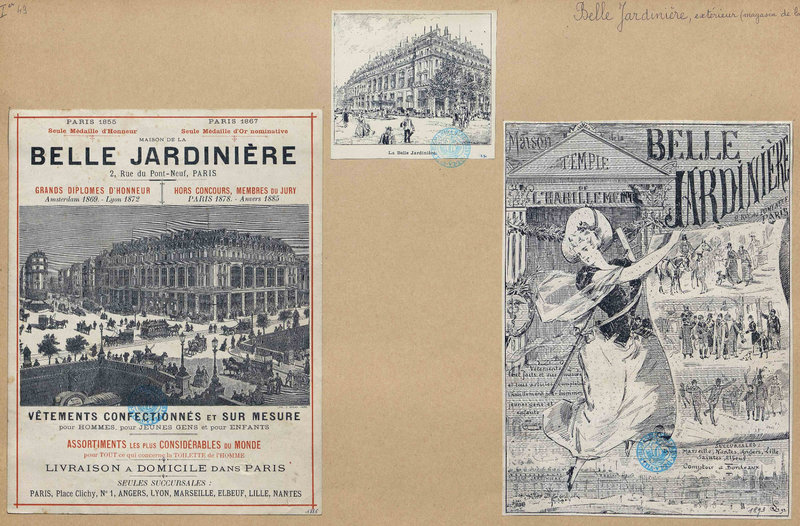 Ier 49
Belle Jardinière, extérieur (magasin de
PARIS 1855
PARIS 1867
Seule Médaille d'Honneur
Seule Médaille d'Or nominative
MAISON DE LA
BELLE JARDINIÈRE
2, Rue du Pont-Neuf, PARIS
GRANDS DIPLOMES D'HONNEUR
HORS CONCOURS, MEMBRES DU JURY
Amsterdam 1869. - Lyon 1872
PARIS 1878. - Anvers 1885
VÊTEMENTS CONFECTIONNÉS ET SUR MESURE
pour HOMMES, pour JEUNES GENS et pour ENFANTS
ASSORTIMENTS LES PLUS CONSIDÉRABLES DU MONDE
pour TOUT ce qui concerne la TOILETTE de l'HOMME
LIVRAISON A DOMICILE DANS PARIS
SEULES SUCCURSALES :
PARIS, Place Clichy, N° 1, ANGERS, LYON, MARSEILLE, ELBEUF, LILLE, NANTES
La Belle Jardinière.
Maison de la
BELLE
JARDINIÈRE
PARIS
TEMPLE
DE
L'HABILLEMENT
Vêtements
tout faits et sur
jeunes gens et
enfants
SUCCURSALES
Marseille, Nantes, Angers, Lille
Saintes, Elbeuf
Comptoir à Bordeaux
1893